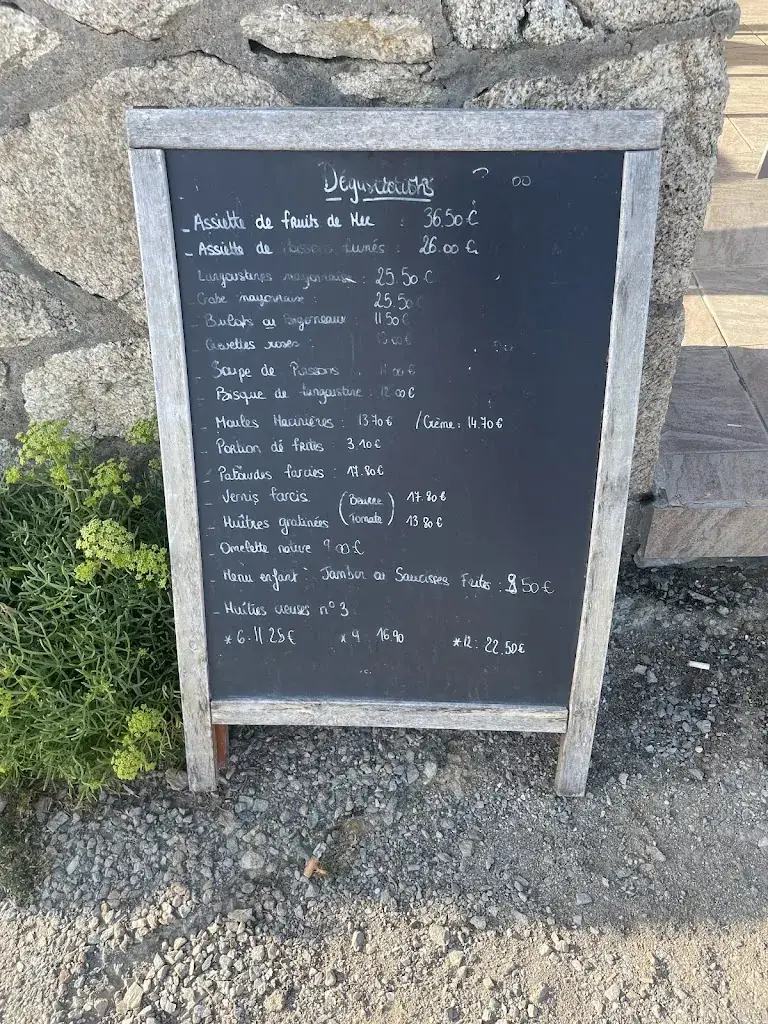 Dégustations
- Assiette de fruits de Mer : 36.50 €
- Assiette de fumés : 26.00 €
- Langoustines mayonnaise : 25.50 €
- Crabe mayonnaise : 25.50
- Bulots ou Bigorneaux 11.50 €
- Crevettes roses :
- Soupe de Poissons :
- Bisque de langoustine : 12.00 €
- Moules Marinières : 13.70 € / Crème : 14.70 €
- Portion de frites : 3.10 €
- Palourdes farcies : 17.80 €
- Vernis farcis (Beurre 17.80 €
- Huîtres gratinées Tomate) 13.80 €
- Omelette nature 9.00 €
- Menu enfant : Jambon ou Saucisses Frites : 8.50 €
- Huîtres creuses n° 3
* 6 : 11.25 € * 9 16.90 * 12 : 22.50 €